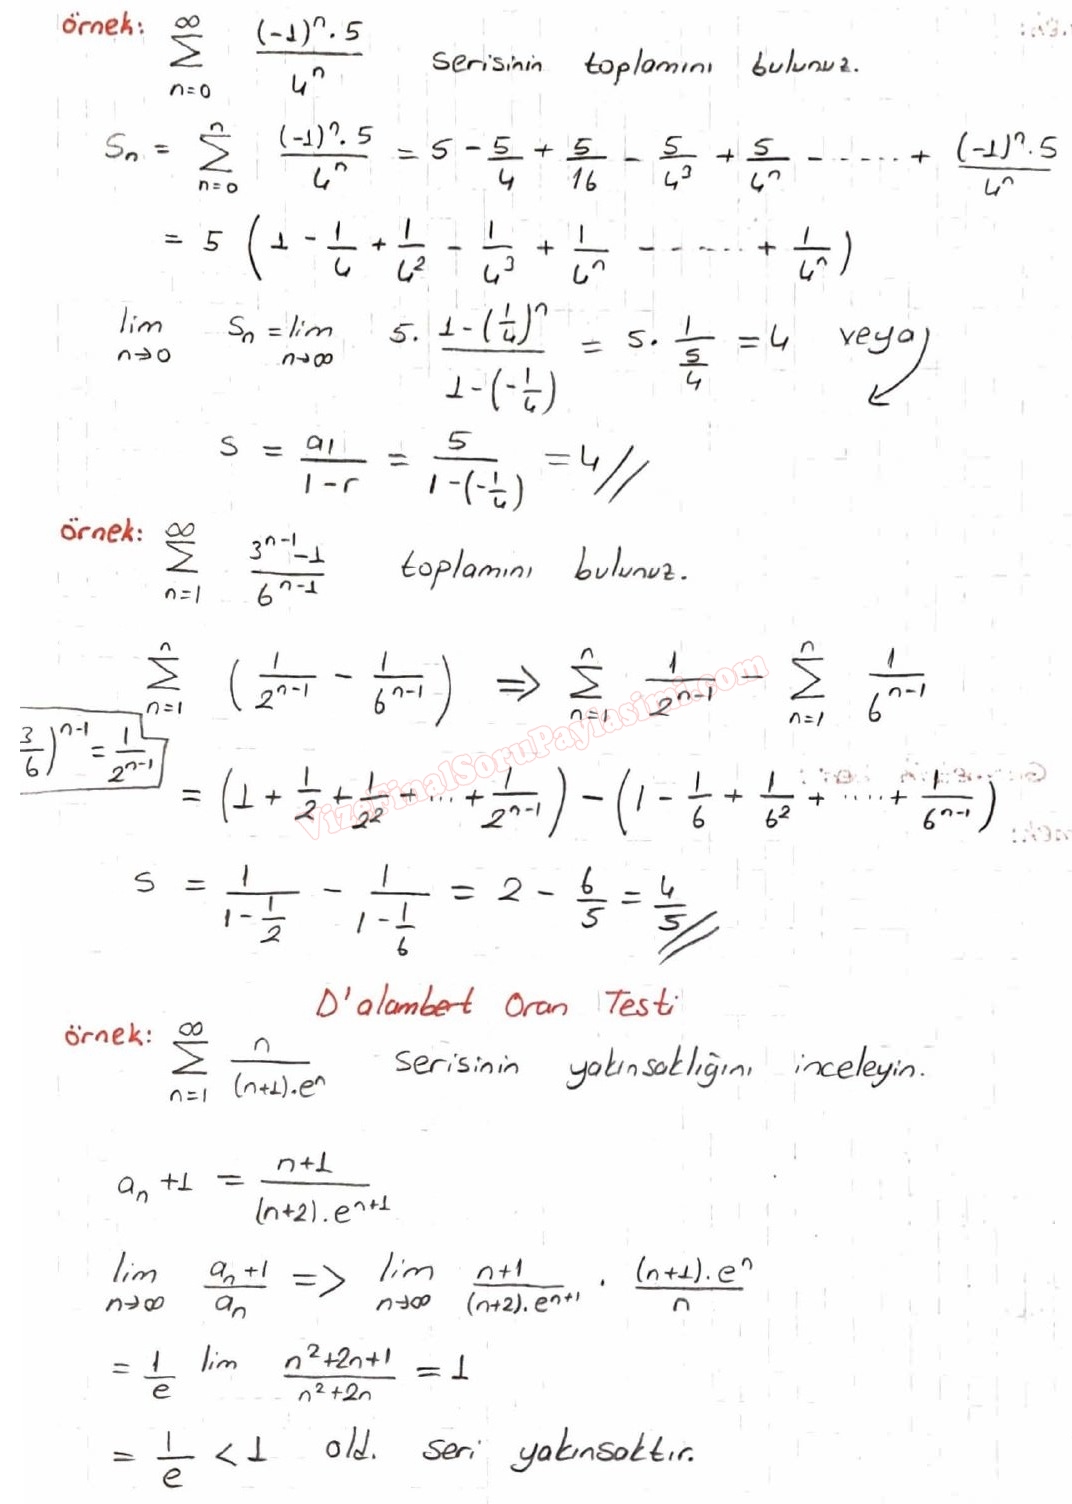 örnek: ∞ Σ n=0 (-1)ⁿ.5 / 4ⁿ serisinin toplamını bulunuz.
Sn = n Σ n=0 (-1)ⁿ.5 / 4ⁿ = 5 - 5/4 + 5/16 - 5/4³ + 5/4ⁿ - ..... + (-1)ⁿ.5 / 4ⁿ
= 5 (1 - 1/4 + 1/4² - 1/4³ + 1/4ⁿ - ..... + 1/4ⁿ)
lim n→0 Sn = lim n→∞ 5. 1-(1/4)ⁿ / 1-(-1/4) = 5. 1/(5/4) = 4 veya
S = a1 / 1-r = 5 / 1-(-1/4) = 4 //
örnek: ∞ Σ n=1 3ⁿ⁻¹-1 / 6ⁿ⁻¹ toplamını bulunuz.
n Σ n=1 (1/2ⁿ⁻¹ - 1/6ⁿ⁻¹) => n Σ n=1 1/2ⁿ⁻¹ - n Σ n=1 1/6ⁿ⁻¹
3/6)ⁿ⁻¹ = 1/2ⁿ⁻¹
= (1 + 1/2 + 1/2² + ... + 1/2ⁿ⁻¹) - (1 - 1/6 + 1/6² + ..... + 1/6ⁿ⁻¹)
VizeFinalSoruPaylasimi.com
S = 1 / 1-1/2 - 1 / 1-1/6 = 2 - 6/5 = 4/5 //
D'alambert Oran Testi
örnek: ∞ Σ n=1 n / (n+1).eⁿ serisinin yakınsaklığını inceleyin.
an +1 = n+1 / (n+2).eⁿ⁺¹
lim n→∞ an +1 / an => lim n→∞ n+1 / (n+2).eⁿ⁺¹ . (n+1).eⁿ / n
= 1/e lim n²+2n+1 / n²+2n = 1
= 1/e < 1 old. seri yakınsaktır.